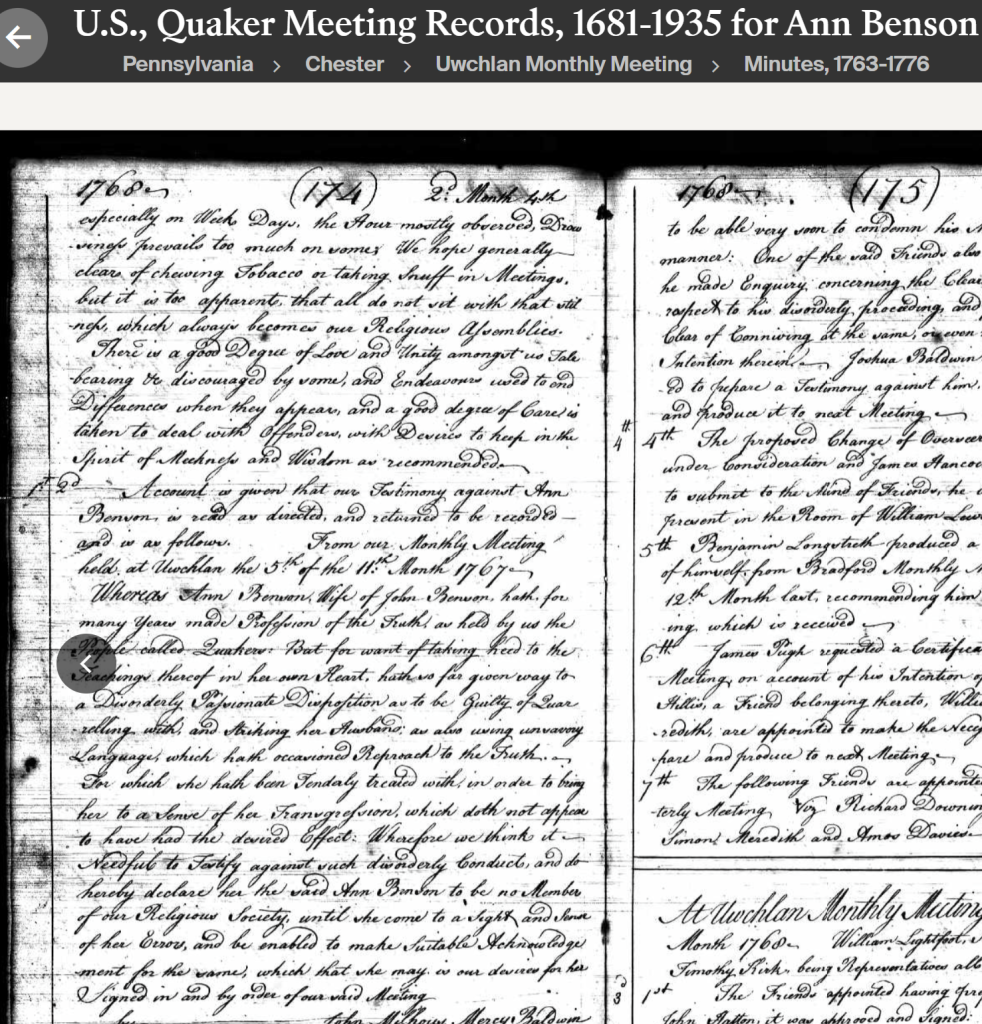 U.S., Quaker Meeting Records, 1681-1935 for Ann Benson
Pennsylvania > Chester > Uwchlan Monthly Meeting > Minutes, 1763-1776
1768 (174) 2d Month 4th
especially on Week Days, the Hour mostly observed, Drow
-siness prevails too much on some; We hope generally
clear of chewing Tobacco or taking Snuff in Meetings,
but it is too apparent, that all do not sit with that stil
-ness, which always becomes our Religious Assemblies.
There is a good Degree of Love and Unity amongst us Tale
bearing &c discouraged by some, and Endeavours used to end
Differences when they appear, and a good degree of Care is
taken to deal with Offenders, with Desires to keep in the
Spirit of Meekness and Wisdom as recommended.
1st 2d Account is given that our Testimony against Ann
Benson, is read as directed, and returned to be recorded
and is as follows. From our Monthly Meeting
held at Uwchlan the 5th of the 11th Month 1767
Whereas Ann Benson, Wife of John Benson, hath for
many Years made Profession of the Truth, as held by us the
People called Quakers: But for want of taking heed to the
Teachings thereof in her own Heart, hath so far given way to
a Disorderly Passionate Disposition as to be Guilty of Quar
relling with, and Striking her Husband; as also using unsavory
Language, which hath occasioned Reproach to the Truth.
For which she hath been Tenderly treated with, in order to bring
her to a Sense of her Transgression, which doth not appear
to have had the desired Effect: Wherefore we think it
Needful to Testify against such disorderly Conduct, and do
hereby declare her the said Ann Benson to be no Member
of our Religious Society, until she come to a Sight and Sense
of her Error, and be enabled to make Suitable Acknowledge
ment for the same, which that she may is our desires for her
Signed in and by order of our said Meeting
by John Milhous Mercy Baldwin
1768 (175)
to be able very soon to condemn his
manner: One of the said Friends also
he made Enquiry, concerning the Clear
respect to his disorderly proceeding, and
Clear of Conniving at the same, or even
Intention therein. Joshua Baldwin
-ed to prepare a Testimony against him,
and produce it to next Meeting
4th 4th The proposed Change of Overseer
under Consideration and James Hancoc
to submit to the Mind of Friends, he
present in the Room of William Lew
5th Benjamin Longstreth produced a
of himself from Bradford Monthly M
12th Month last, recommending him
ing, which is received
6th James Pugh requested a Certifica
Meeting, on account of his Intention of
Hillis, a Friend belonging thereto, Willi
-redith, are appointed to make the Nece
pare and produce to next Meeting
7th The following Friends are appointe
terly Meeting Viz Richard Downin
Simon Meredith and Amos Davies
At Uwchlan Monthly Meeting
Month 1768 William Lightfoot,
Timothy Kirk, being Representatives
3 1st The Friends appointed having
John it was approved and Signed: